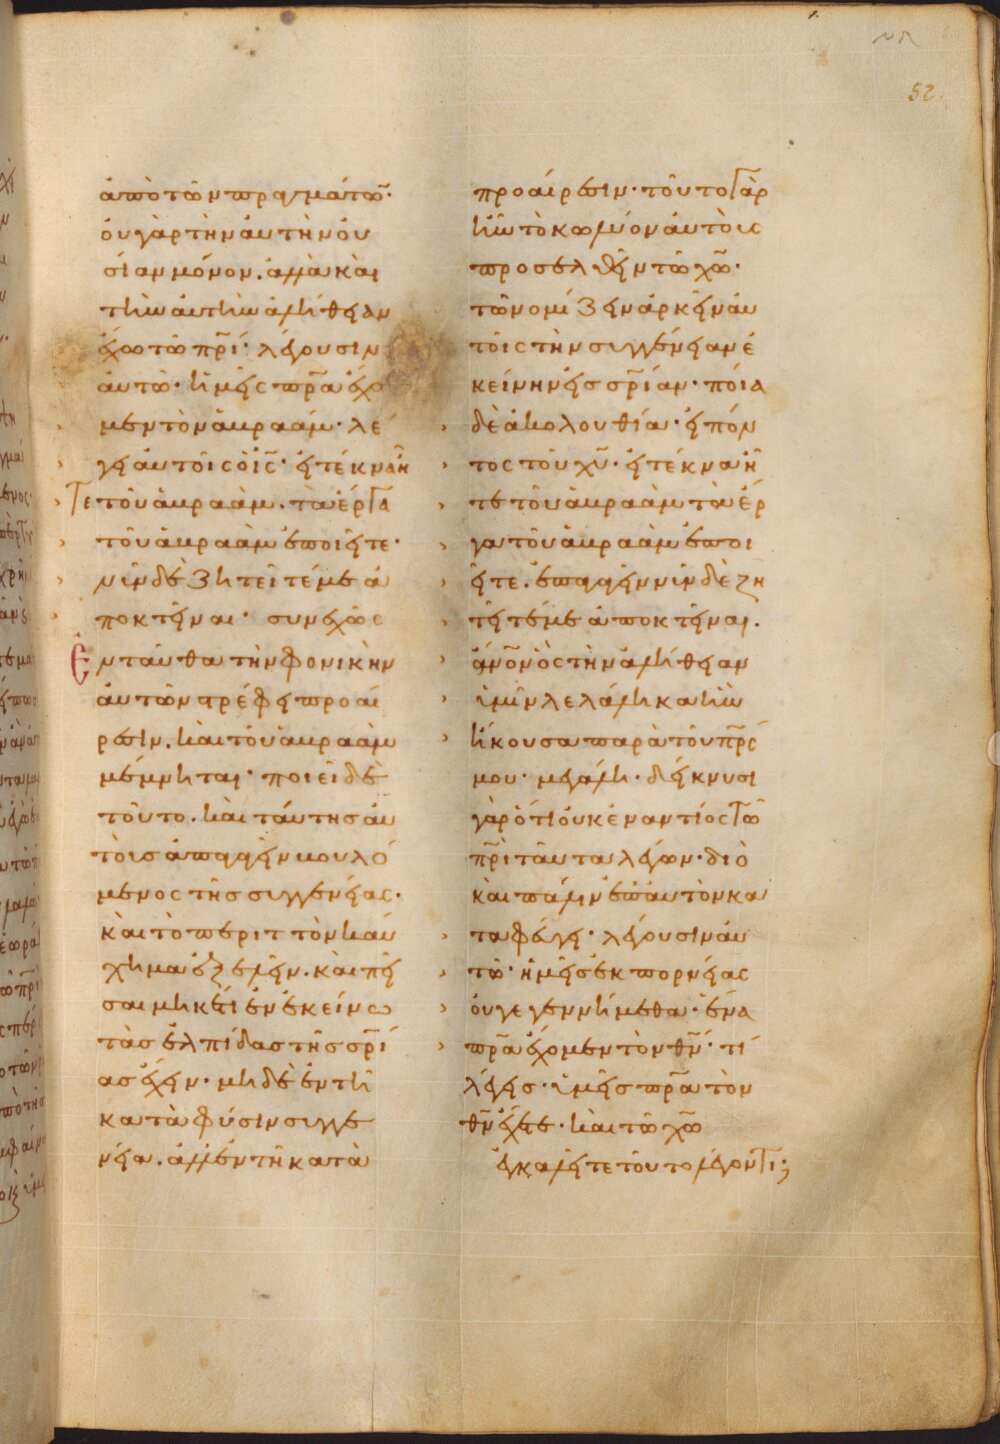 52
ἀπὸ τῶν πραγμάτω̅·
οὐ γὰρ τὴν ἀυτὴν ὀυ
σίαν μόνον. ἀλλὰ κὰι
τὴν ἀυτὴν ἀλήθειαν
ἔχω τῶ πρ̅ί· λέγουσιν
ἀυτῶ· ἡμεῖς πρ̅α ἔχο
μεν τὸν ἀβραάμ· λέ
γει ἀυτοῖς ὁ ις̅· ἐι τέκνα ἦ
τε τοῦ ἀβραὰμ. τὰ ἔργα
τοῦ ἀβραὰμ ἐποιεῖτε·
νῦν δὲ ζητεῖτέ με ἀ
ποκτεῖναι· συνεχῶς
ἐνταῦθα τὴν φονικὴν
ἀυτῶν τρέφει προαί
ρεσιν. καὶ τοῦ ἀβραὰμ
μέμνηται· ποιεῖ δὲ
τοῦτο. κὰι ταύτης ἀυ
τοὺς ἀπαγαγεῖν βουλό
μενος τῆς συγγενείας·
κὰι τὸ περιττὸν καύ
χημα ἐξελεῖν. κὰι πεῖ
σαι μηκέτι ἐν ἐκείνω
τὰς ἐλπίδας τῆς σρ̅ί
ας ἔχειν· μηδὲ ἐν τῆ
κατὰ φύσιν συγγε
νεία. ἀλλ' ἐν τῆ κατὰ
προαίρεσιν· τοῦτο γὰρ
ἦν τὸ κωλύον ἀυτοὺς
προσελθεῖν τῶ χω̅·
τῶ νομίζειν ἀρκεῖν ἀυ
τοῖς τὴν συγγένειαν ἐ
κείνην εἰς σρ̅ίαν· ποία
δὲ ἀκολουθία· εἰπόν
τος τοῦ χυ̅· ἐι τέκνα ἦ
τε τοῦ ἀβραὰμ τὰ ἔρ
γα τοῦ ἀβραὰμ ἐποι
εῖτε. ἐπαγαγεῖν νῦν δὲ ζη
τεῖτέ με ἀποκτεῖναι.
ἀνο̅ν ὃς τὴν ἀλήθειαν
ὑμῖν λελάληκα ἣν
ἤκουσα παρὰ τοῦ πρ̅ς
μου· μεγάλη· δείκνυσι
γὰρ ὅτι οὐκ ἐναντίος τῶ
πρ̅ι ταῦτα λέγων· διὸ
κὰι πάλιν ἐπ' ἀυτὸν κα
ταφεύγει· λέγουσιν ἀυ
τῶ· ἡμεῖς ἐκ πορνείας
ὀυ γεγεννήμεθα· ἕνα
πρ̅α ἔχομεν τὸν θν̅· τί
λέγεις· ὑμεῖς πρ̅α τὸν
θν̅ ἔχετε· κὰι τῶ χω̅
ἐγκαλεῖτε τοῦτο λέγοντι;